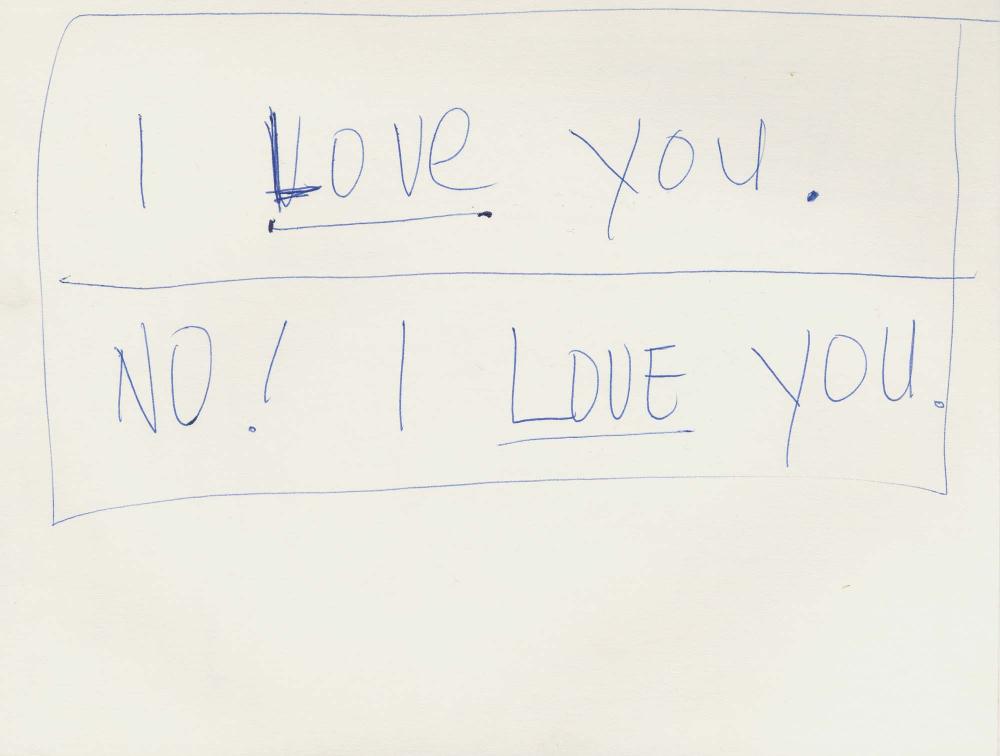 I LOVe YOU.
NO! I LOVE YOU.